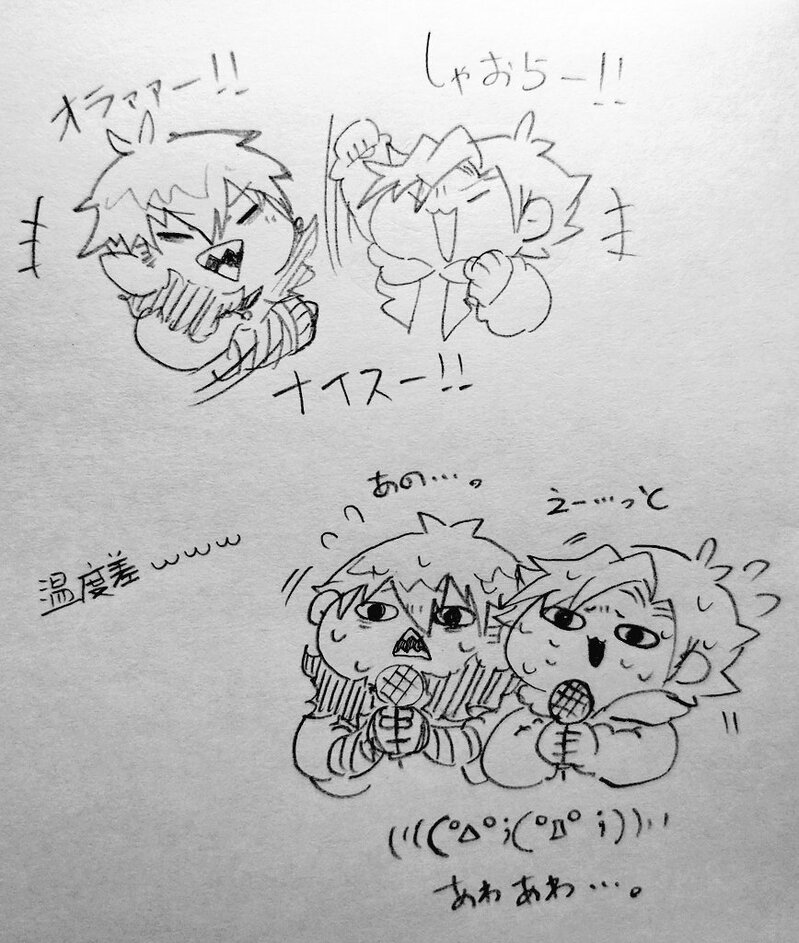 オラァァー!!
しゃおらー!!
ナイスー!!
あの…。
えー…っと
温度差www
(((°△°;(°Д°;)))
あわあわ…。